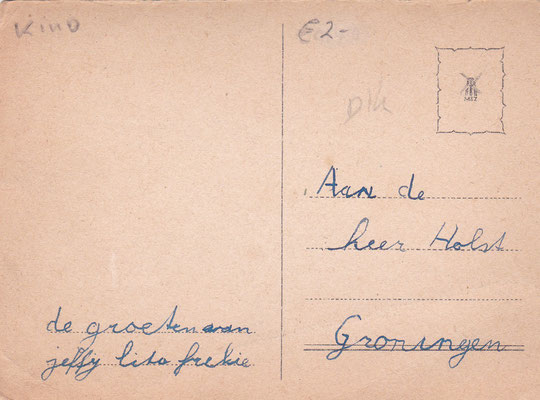 Kind
€ 2-
Aan de
heer Holst
Groningen
de groeten van
jeffy lita frekie